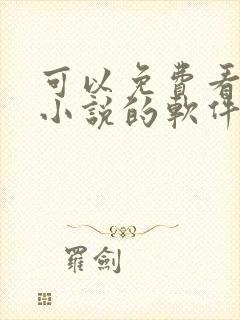 可以免費看
小說的軟件
羅劍